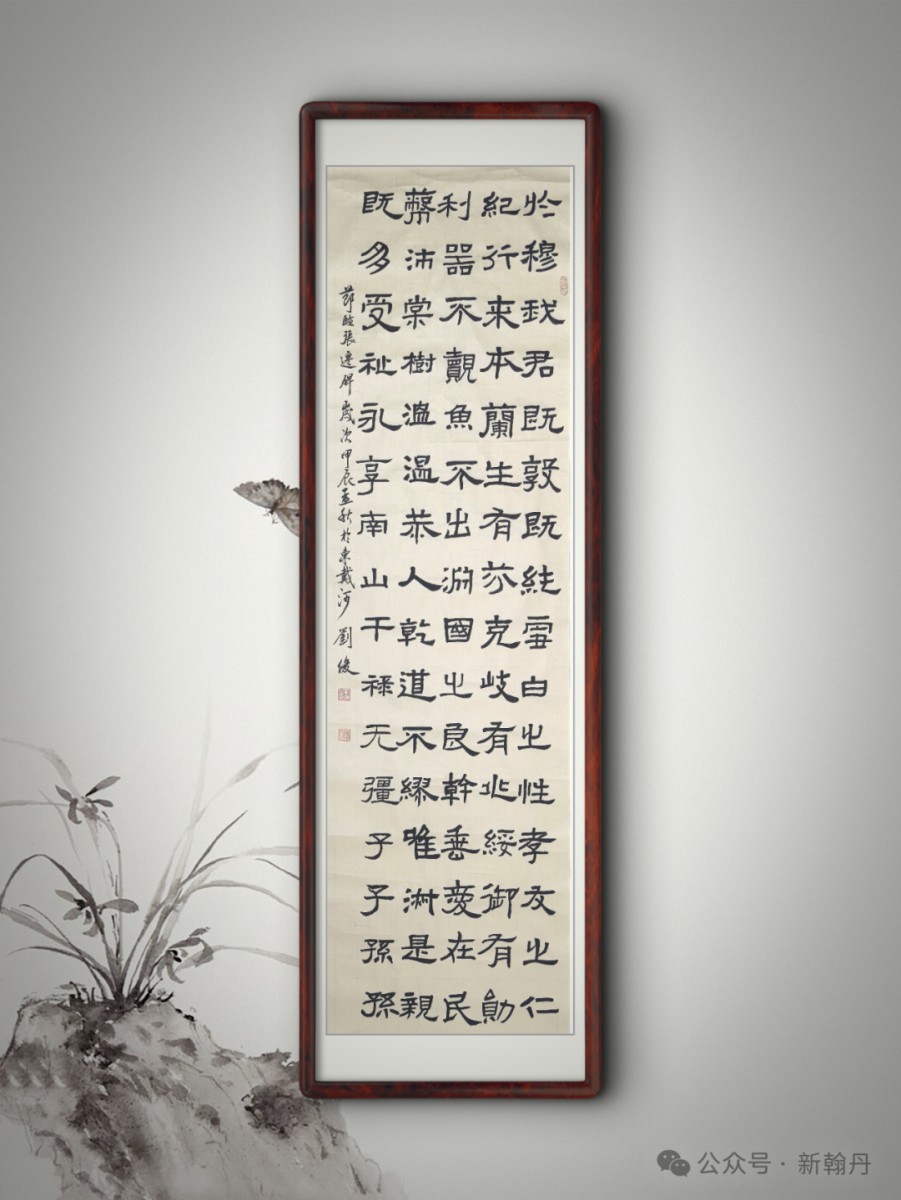 於穆我君既敦既純雪白之性孝友之仁
紀行来本蘭生有芬克岐有兆綏御有勛
利器不覿魚不出渊國之良幹垂愛在民
蔽沛棠樹温温恭人乾道不繆唯淑是親
既多受祉永享南山干禄无疆子子孫孫
節臨張遷碑歲次甲辰孟秋於東戴河劉俊
公众号·新翰丹